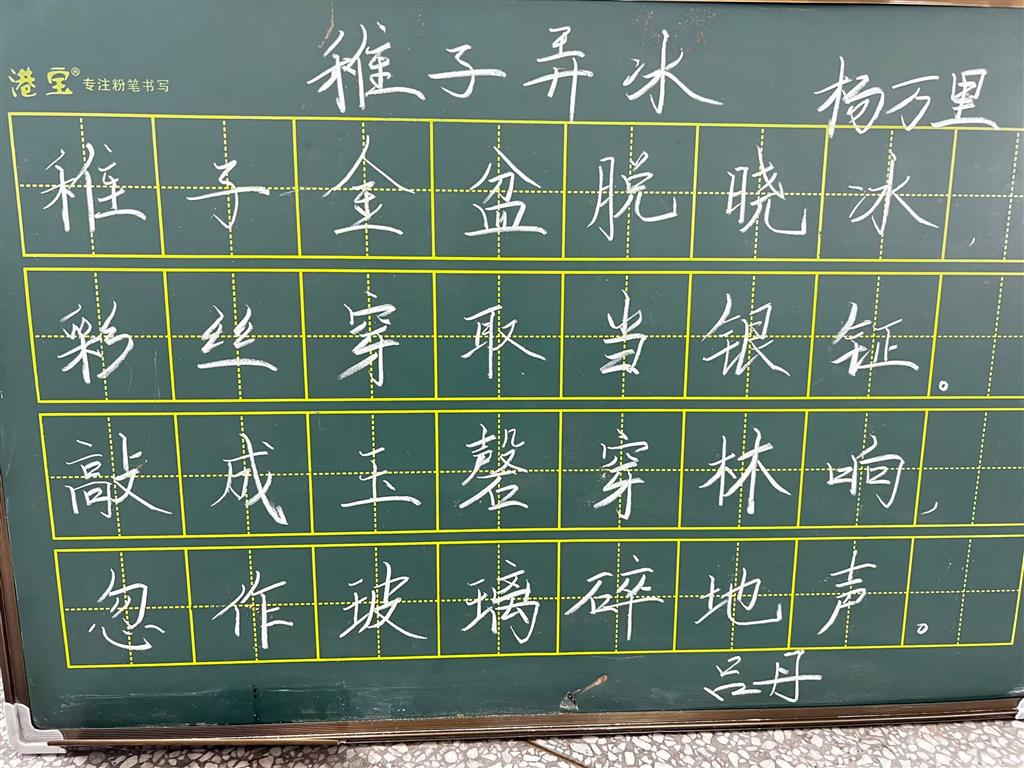 港宝® 专注粉笔书写
稚子弄冰
杨万里
稚子金盆脱晓冰,
彩丝穿取当银钲。
敲成玉磬穿林响,
忽作玻璃碎地声。
吕丹